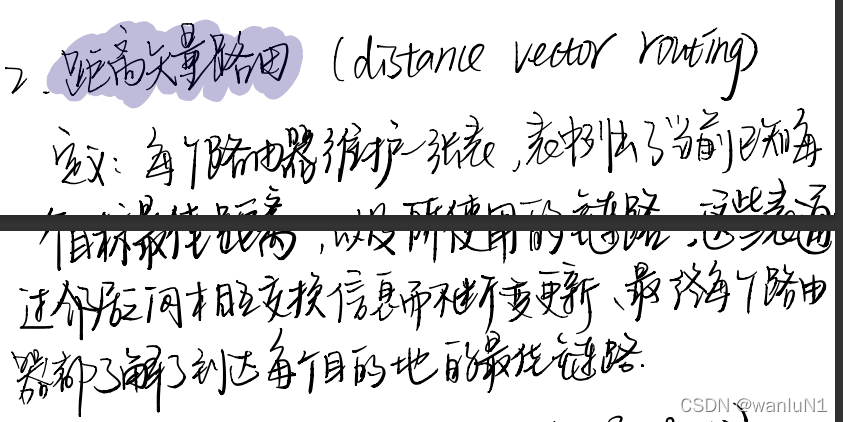 2. 距离矢量路由 (distance vector routing)
定义：每个路由器维护一张表,表中列出了当前已知每
个目标最佳距离,以及所使用的链路.这些表通
过邻居间相互交换信息而不断变更新、最终每个路由
器都了解了到达每个目的地的最佳链路.
CSDN @wanluN1